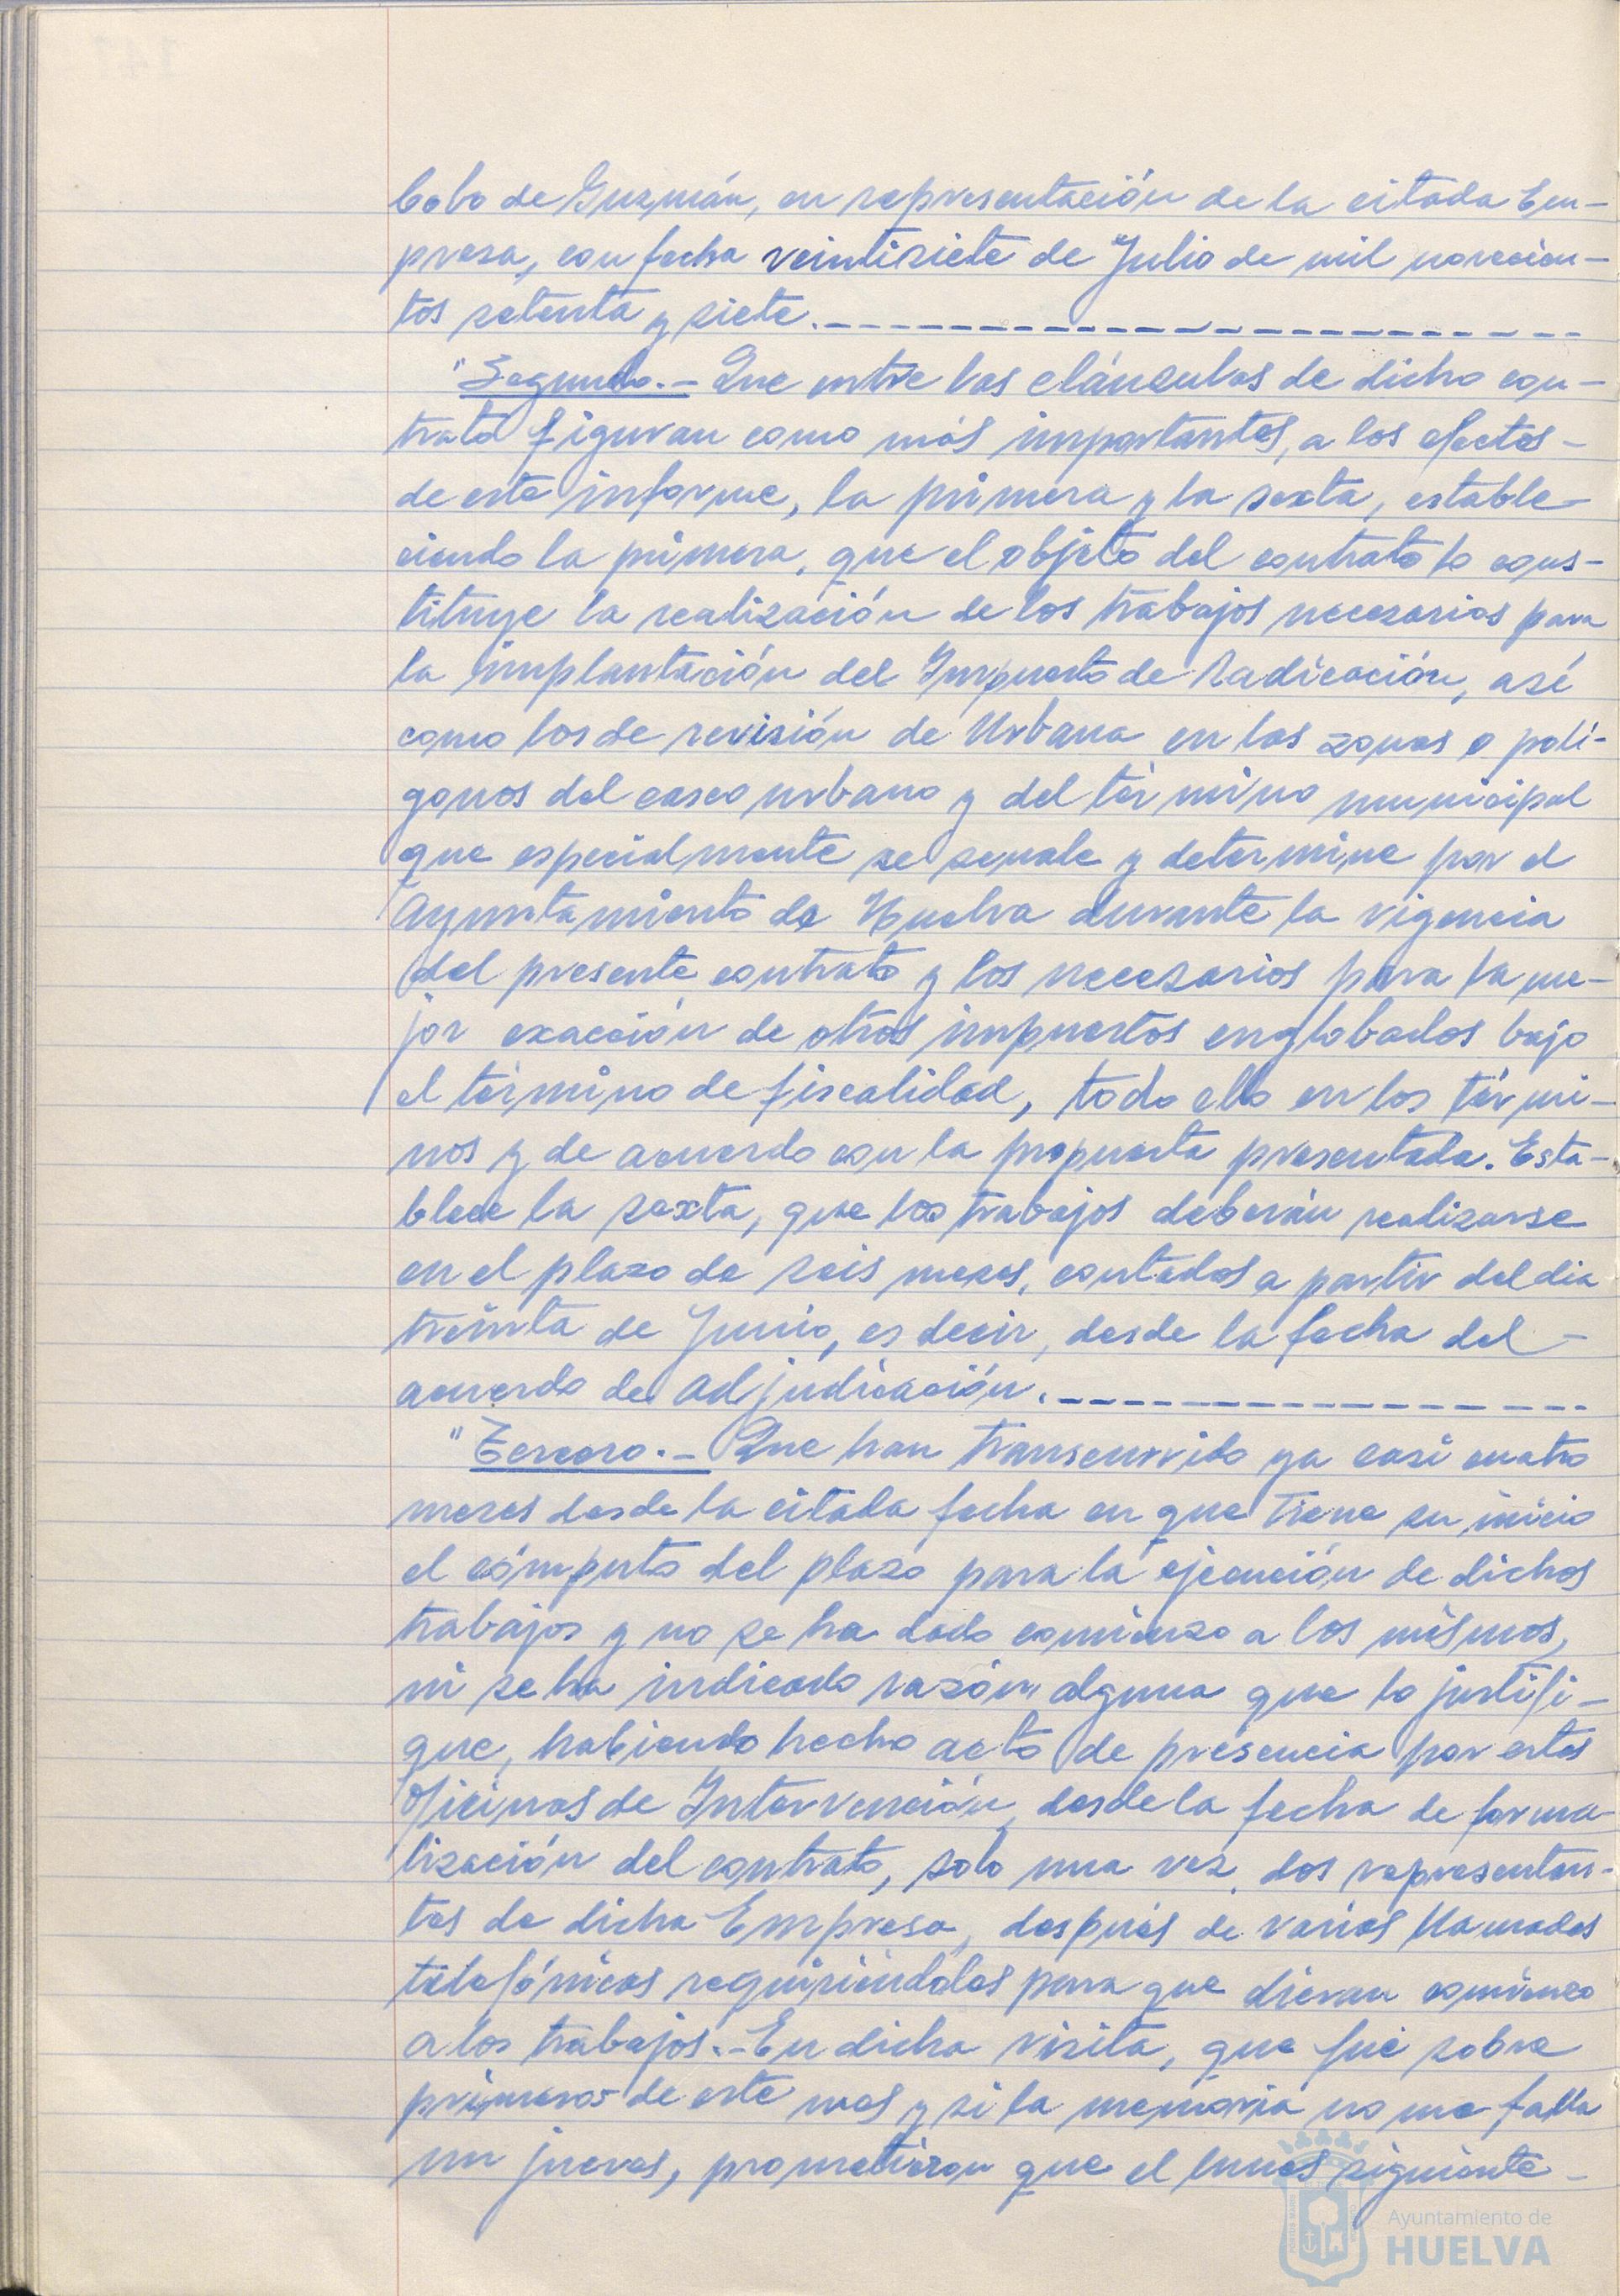 Cobo de Guzmán, en representación de la citada Em-
presa, con fecha veintisiete de Julio de mil novecien-
tos setenta y siete.
"Segundo.- Que entre las cláusulas de dicho con-
trato figuran como más importantes, a los efectos-
de este informe, la primera y la sexta, estable-
ciendo la primera, que el objeto del contrato lo cons-
tituye la realización de los trabajos necesarios para
la implantación del Impuesto de Radicación, asé
como los de revisión de Urbana en las zonas o polí-
gonos del casco urbano y del término municipal
que especialmente se senale y determine por el
Ayuntamiento de Huelva durante la vigencia
del presente contrato y los necesarios para la me-
jor exacción de otros impuestos englobados bajo
el término de fiscalidad, todo ello en los térmi-
nos y de acuerdo con la propuesta presentada. Esta-
blece la sexta, que los trabajos deberán realizarse
en el plazo de seis meses, contados a partir del dia
treinta de Junio, es decir, desde la fecha del-
acuerdo de adjudicación.
"Tercero.- Que han transcurrido ya casi cuatro
meses desde la citada fecha en que tiene su inicio
el cómputo del plazo para la ejecución de dichos
trabajos y no se ha dado comienzo a los mismos,
ni se ha indicado razón alguna que lo justifi-
que, habiendo hecho acto de presencia por estas
Oficinas de Intervención, desde la fecha de forma-
lización del contrato, solo una vez, dos representan-
tes de dicha Empresa, después de varias llamadas
telefónicas requiriéndoles para que dieran comienzo
a los trabajos.- En dicha visita, que fué sobre
primeros de este mes y si la memoria no me falla
un jueves, prometieron que el lunes siguiente-
Ayuntamiento de
HUELVA